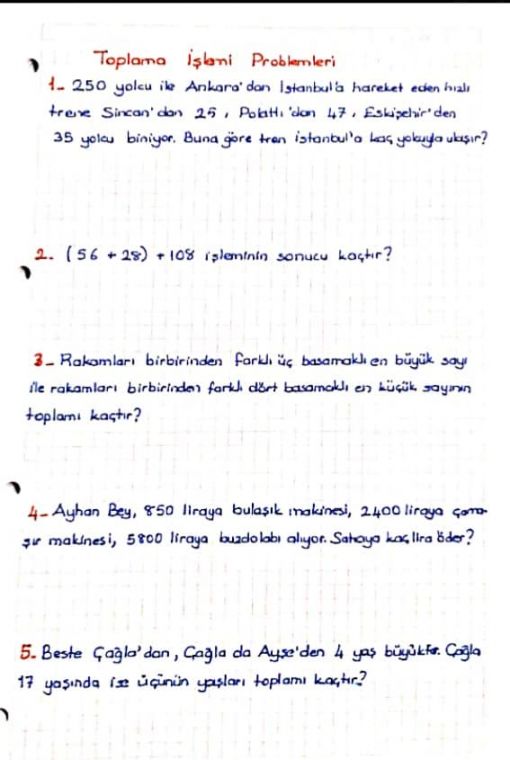 Toplama İşlemi Problemleri
1- 250 yolcu ile Ankara'dan İstanbul'a hareket eden hızlı
trene Sincan'dan 25, Polatlı'dan 47, Eskişehir'den
35 yolcu biniyor. Buna göre tren istanbul'a kaç yolcuyla ulaşır?
2. (56 + 28) + 108 işleminin sonucu kaçtır?
3- Rakamları birbirinden farklı üç basamaklı en büyük sayı
ile rakamları birbirinden farklı dört basamaklı en küçük sayının
toplamı kaçtır?
4- Ayhan Bey, 850 liraya bulaşık makinesi, 2400 liraya çama-
şır makinesi, 5800 liraya buzdolabı alıyor. Satıcıya kaç lira öder?
5. Beste Çağla'dan, Çağla da Ayşe'den 4 yaş büyüktür. Çağla
17 yaşında ise üçünün yaşları toplamı kaçtır?